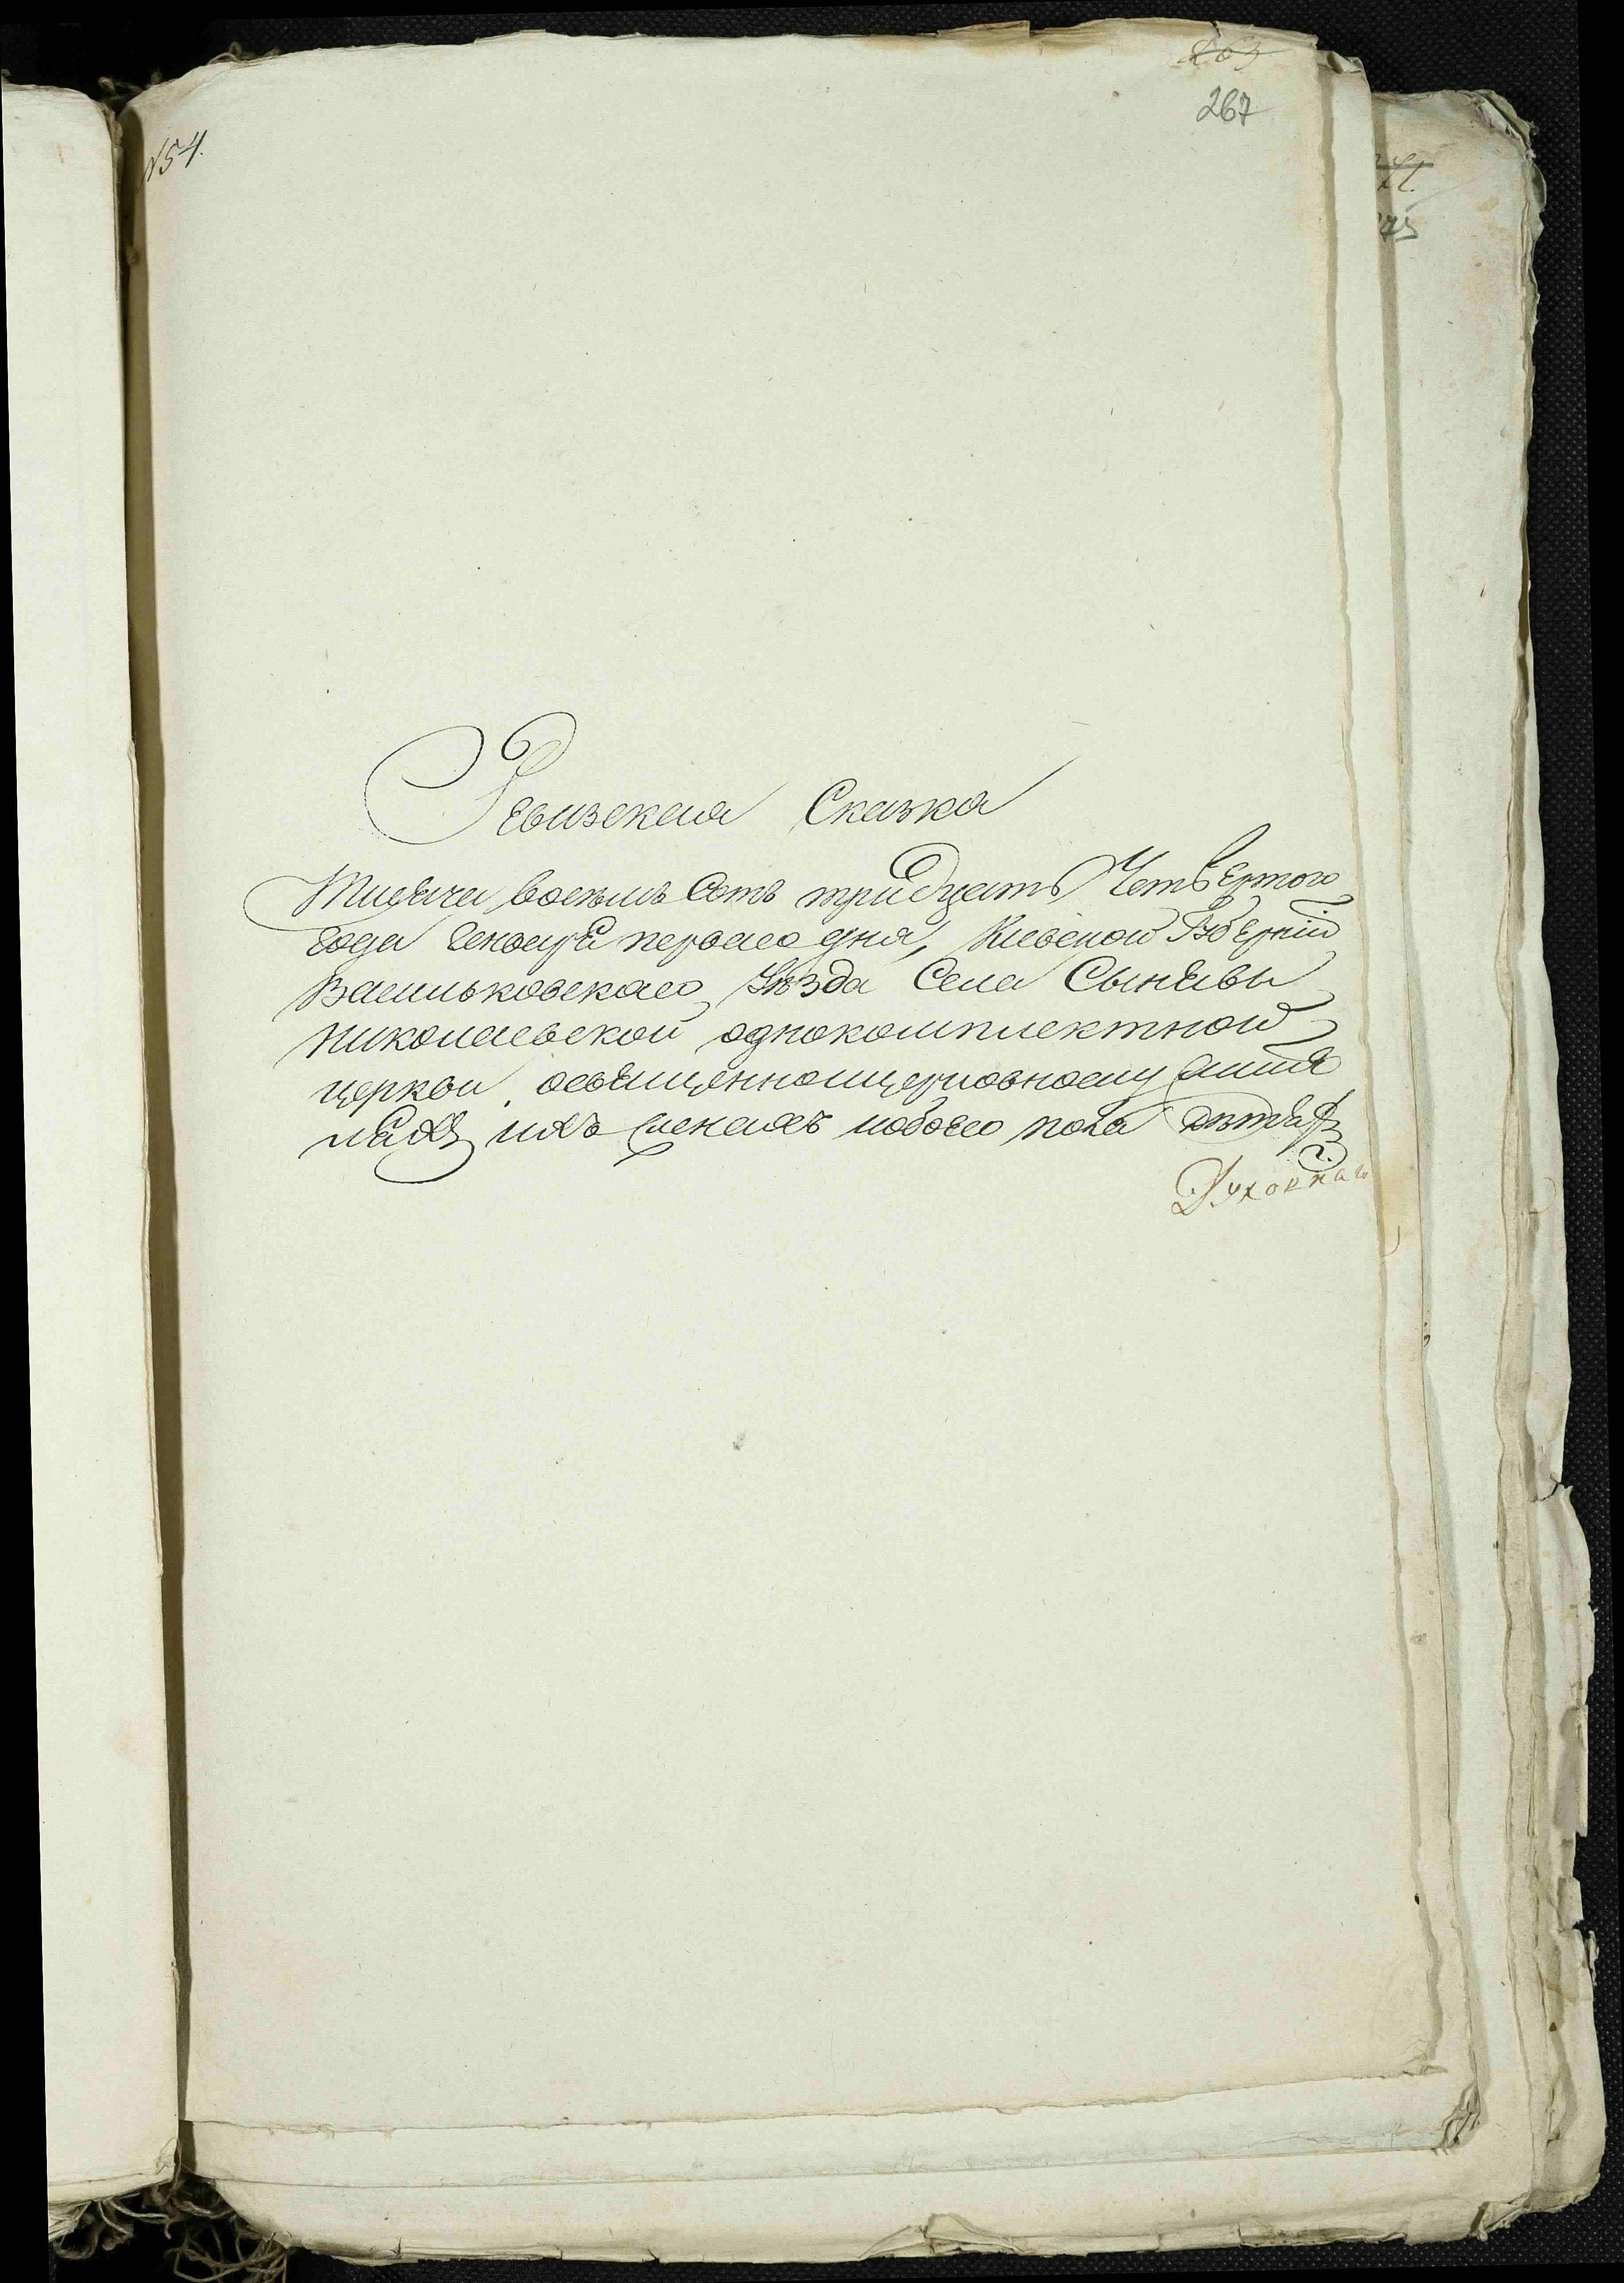 263
267
N 54.
Ревизская Сказка
Тисяча восемь сотъ тридцать Четвертого
Года Генваря перваго дня, Киевской Губерніи
Васильковскаго Уѣзда Села Сынявы
Николаевской однокомплектной
церкви, освященноцерковному
ихъ женахъ и обоего пола дѣтяхъ
Духовнаго